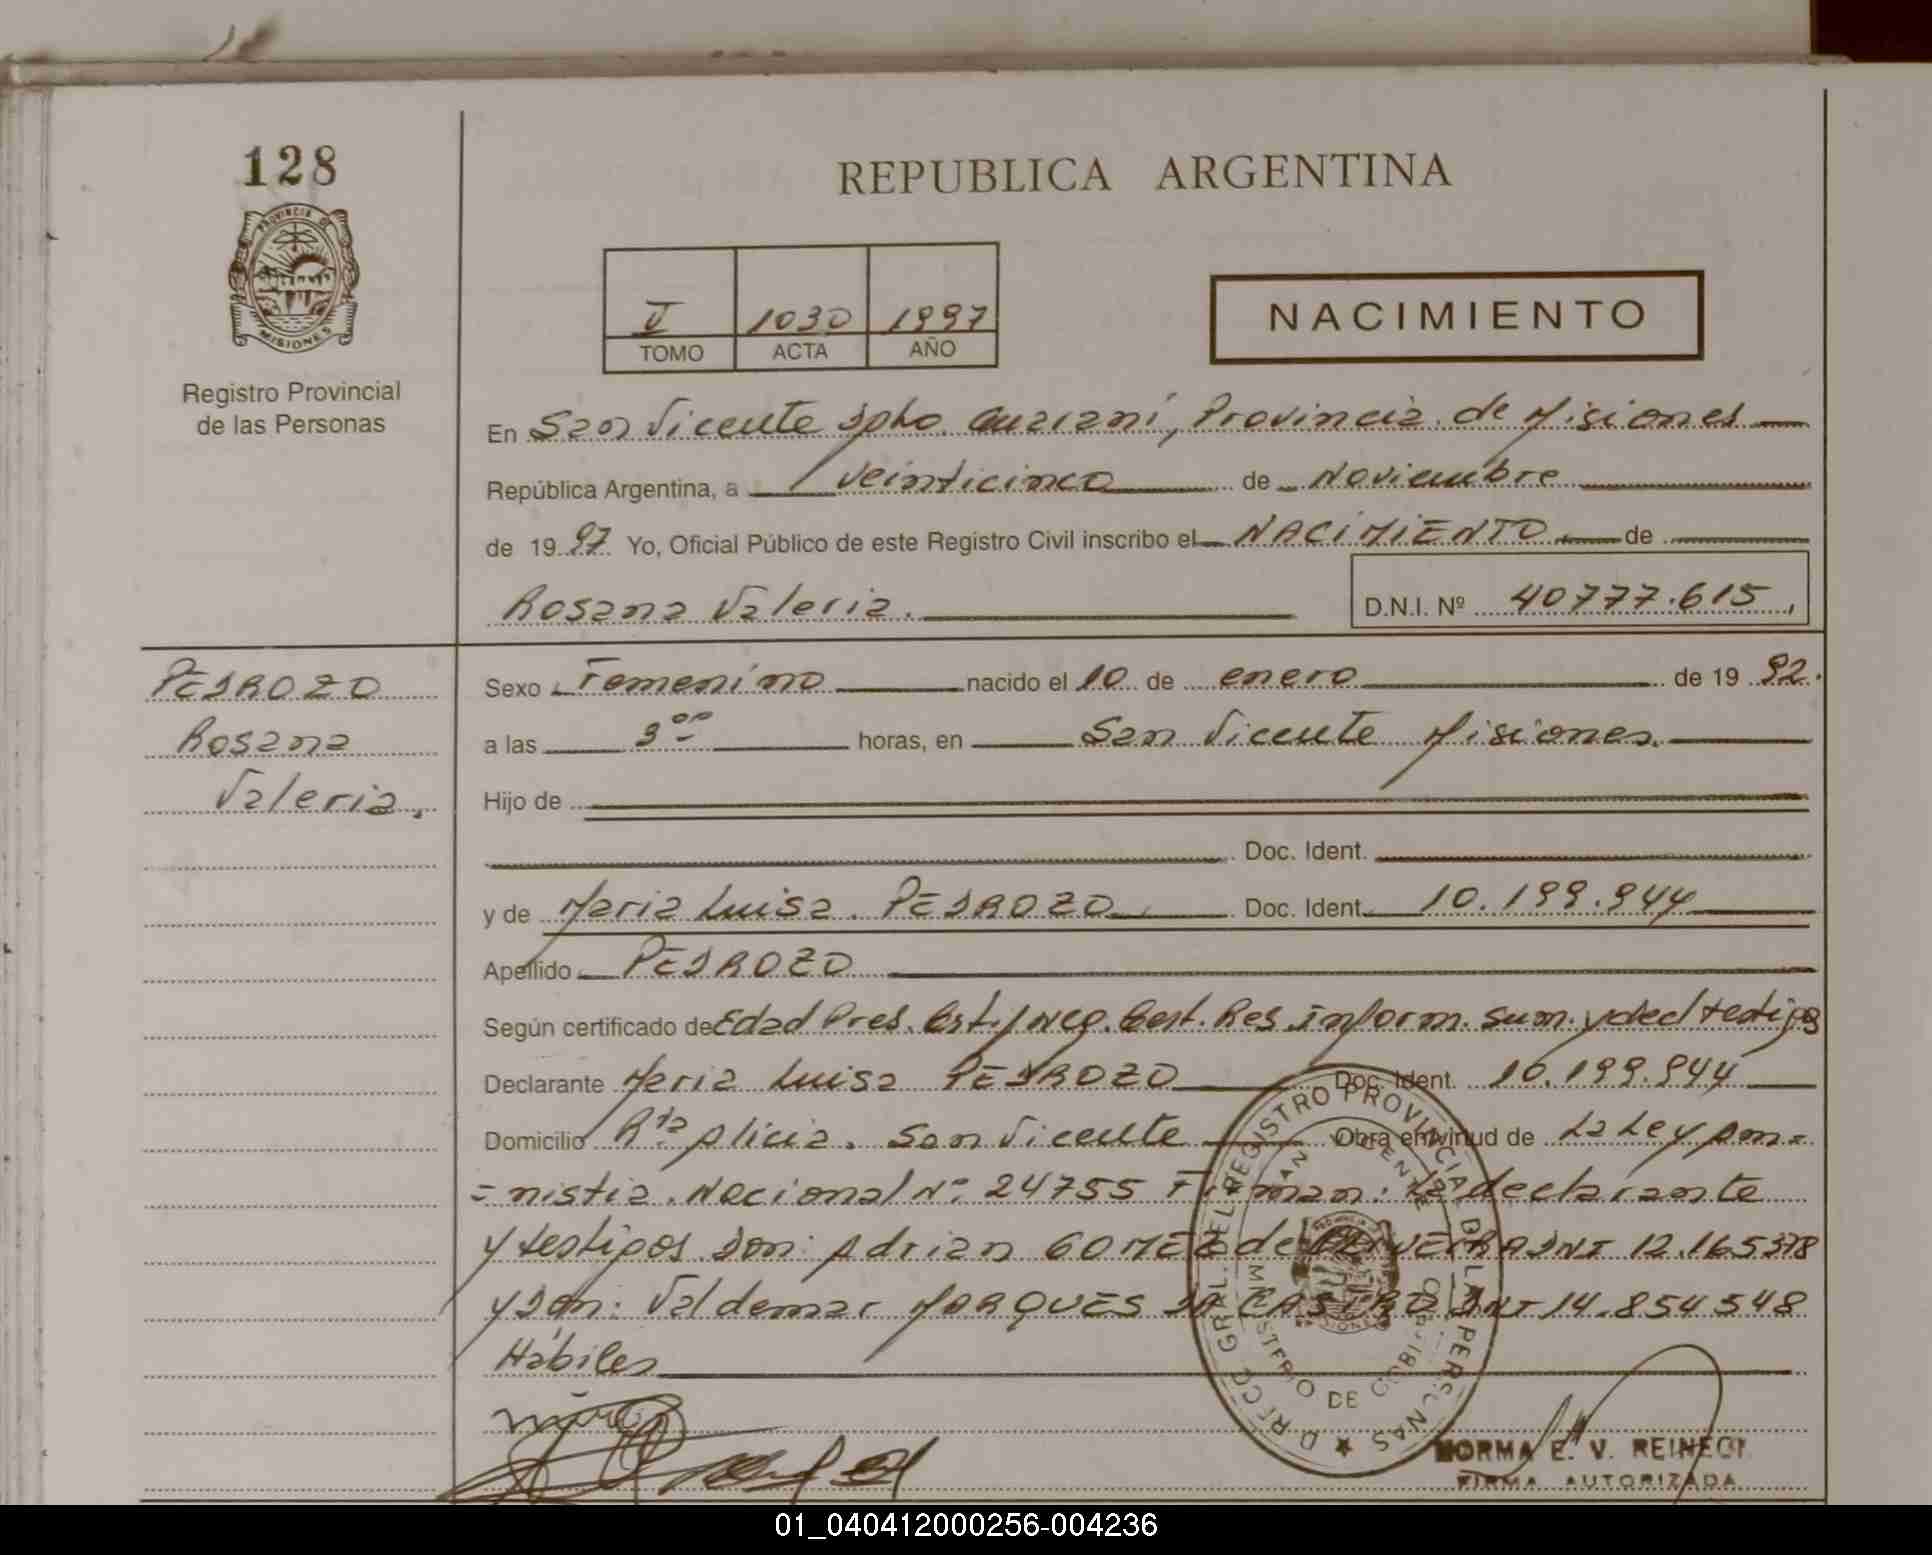 128
REPUBLICA ARGENTINA
PROVINCIA DE
MISIONES
Registro Provincial
de las Personas
V 1030 1997
TOMO ACTA AÑO
NACIMIENTO
En San Vicente Dpto. Guaraní, Provincia de Misiones
República Argentina, a veinticinco de Noviembre
de 1997 Yo, Oficial Público de este Registro Civil inscribo el NACIMIENTO de
Rosana Valeria. D.N.I. Nº 40777.615,
PEDROZO
Rosana
Valeria.
Sexo Femenino nacido el 10 de enero de 1992.
a las 3 00 horas, en San Vicente Misiones.
Hijo de
Doc. Ident.
y de Maria Luisa PEDROZO Doc. Ident. 10.199.944
Apellido PEDROZO
Según certificado de Edad Pres. Cert. Neg. Cert. Res. inform. sum. y decl testigos
Declarante Maria Luisa PEDROZO Doc. Ident. 10.199.944
Domicilio Rta Alicia. San Vicente Obra en virtud de La Ley Am=
=nistia Nacional Nº 24755 Firman: La declarante
y testigos Don: Adrian GOMEZ de OLIVEIRA DNI 12.165378
y Don: Valdemar MARQUES DA CASTRO DNI 14.854548
Hábiles
DIRECC GRAL. DEL REGISTRO PROVINCIAL DE LAS PERSONAS
SAN VICENTE
MINISTERIO DE GOBIERNO
NORMA E. V. REINECI
FIRMA AUTORIZADA
01_040412000256-004236